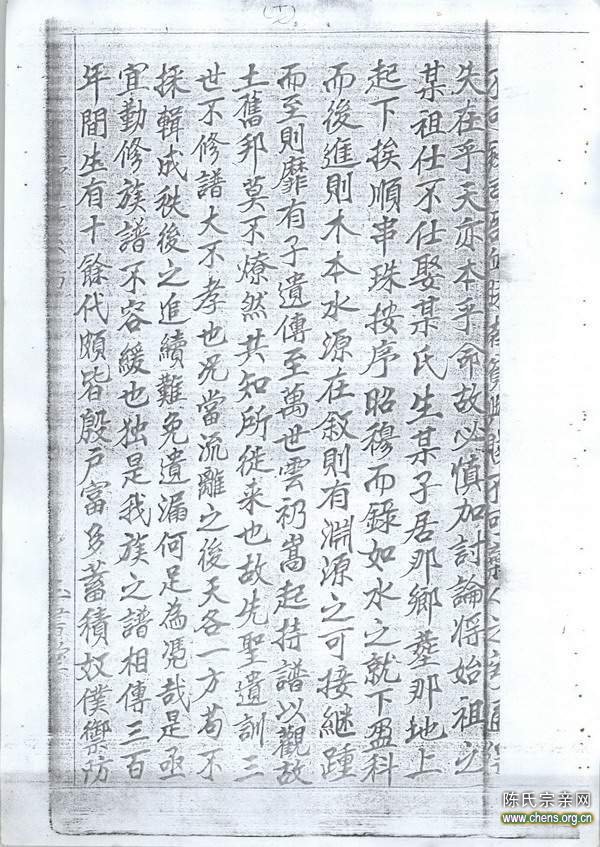 (十七)
失在乎天亦本乎命故必慎加討論将始祖之
某祖仕不仕娶某氏生某子居那鄉塟那地上
起下挨順串珠按序昭穆而錄如水之就下盈科
而後進則木本水源在敘則有淵源之可接継踵
而至則靡有孑遺傳至萬世雲礽嵩起持譜以觀故
土舊邦莫不燎然共知所従来也故先聖遺訓三
世不修譜大不孝也况當流離之後天各一方苟不
採輯成秩後之追續難免遺漏何足為凴哉是亟
宜勤修族譜不容緩也独是我族之譜相傳三百
年間生有十餘代頗皆殷戸富多蓄積奴僕禦防
陈氏宗亲网
www.chens.org.cn